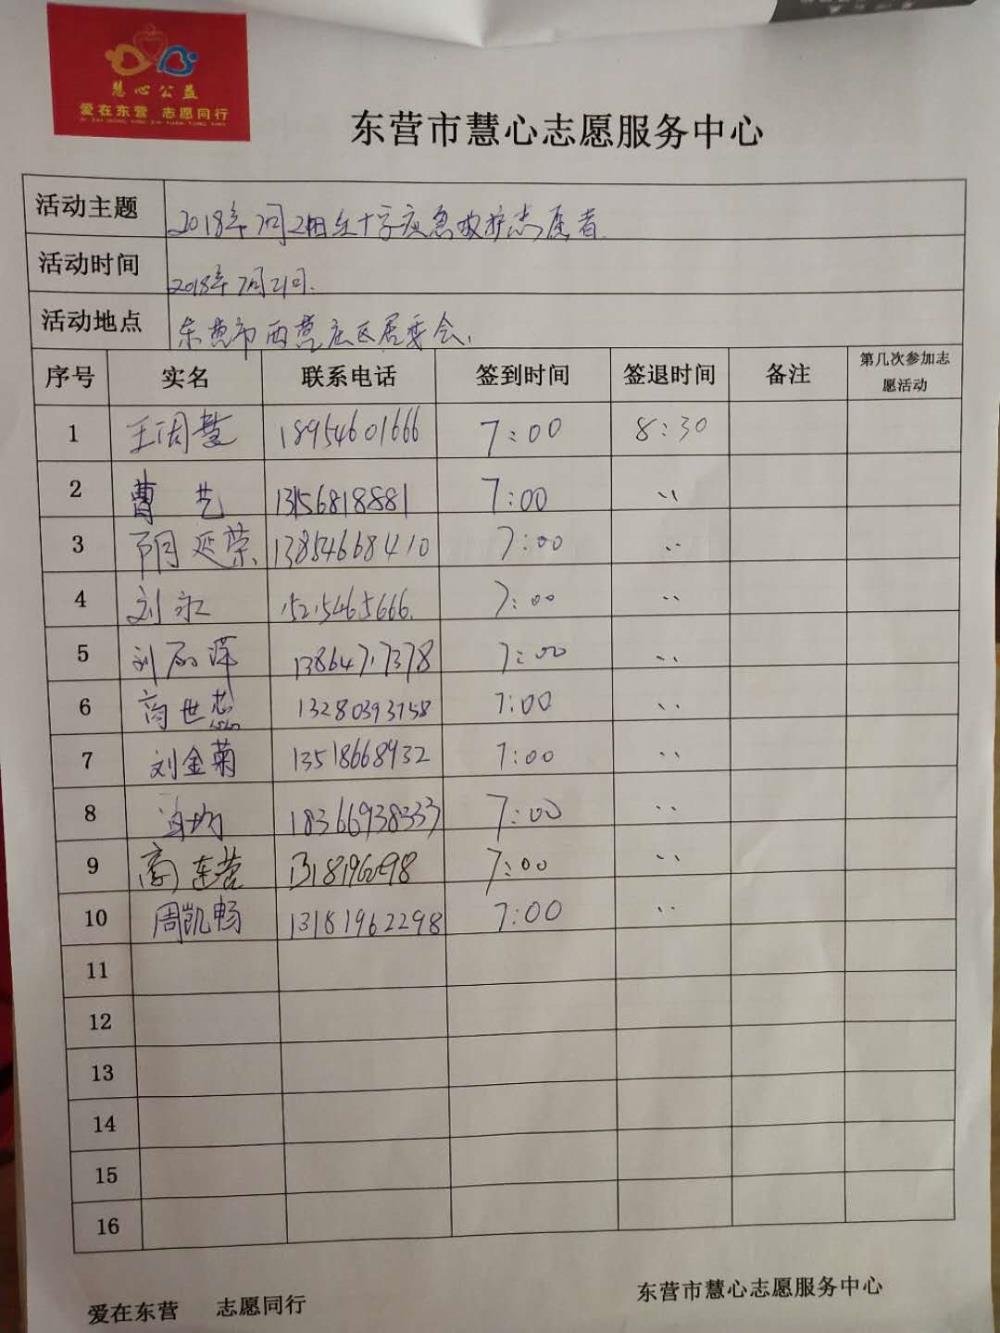 慧心公益
爱在东营 志愿同行
东营市慧心志愿服务中心
活动主题 2018年7月21日红十字应急救护志愿者
活动时间 2018年7月21日.
活动地点 东营市西营社区居委会.
序号 实名 联系电话 签到时间 签退时间 备注 第几次参加志
愿活动
1 王周慧 18954601666 7:00 8:30
2 曹艺 13156818881 7:00 、、
3 阴延荣 13854668410 7:00 、、
4 刘永 15215465666. 7:00 、、
5 刘 7:00 、、
6 商世蕊 13280393758 7:00 、、
7 刘金菊 13518668932 7:00 、、
8 18366938333 7:00 、、
9 高连营 7:00 、、
10 周凯畅 13181962298 7:00 、、
11
12
13
14
15
16
爱在东营 志愿同行 东营市慧心志愿服务中心